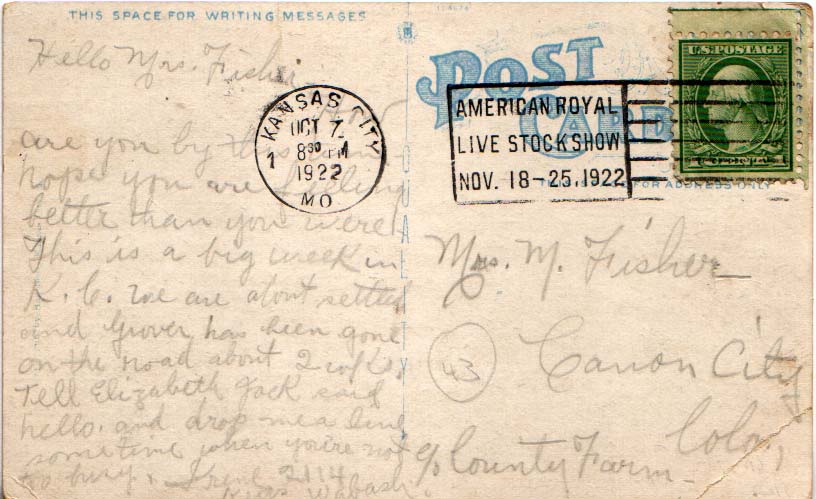 THIS SPACE FOR WRITING MESSAGES
Hello Mrs. Fisher
How
are you by this
hope you are feeling
better than you were.
This is a big week in
K. C. we are about settled
and Grover has been gone
on the road about 2 wks.
Tell Elizabeth Jack said
hello. and drop me a line
sometime when you're not
so busy. Irene 2114
Wabash.
QUALITY
POST
CARD
KANSAS CITY
OCT 7
8 30 PM
1922
MO
1
AMERICAN ROYAL
LIVE STOCK SHOW
NOV. 18-25, 1922
U.S. POSTAGE
FOR ADDRESS ONLY
Mrs. M. Fisher
43
Canon City
Colo,
c/o County Farm